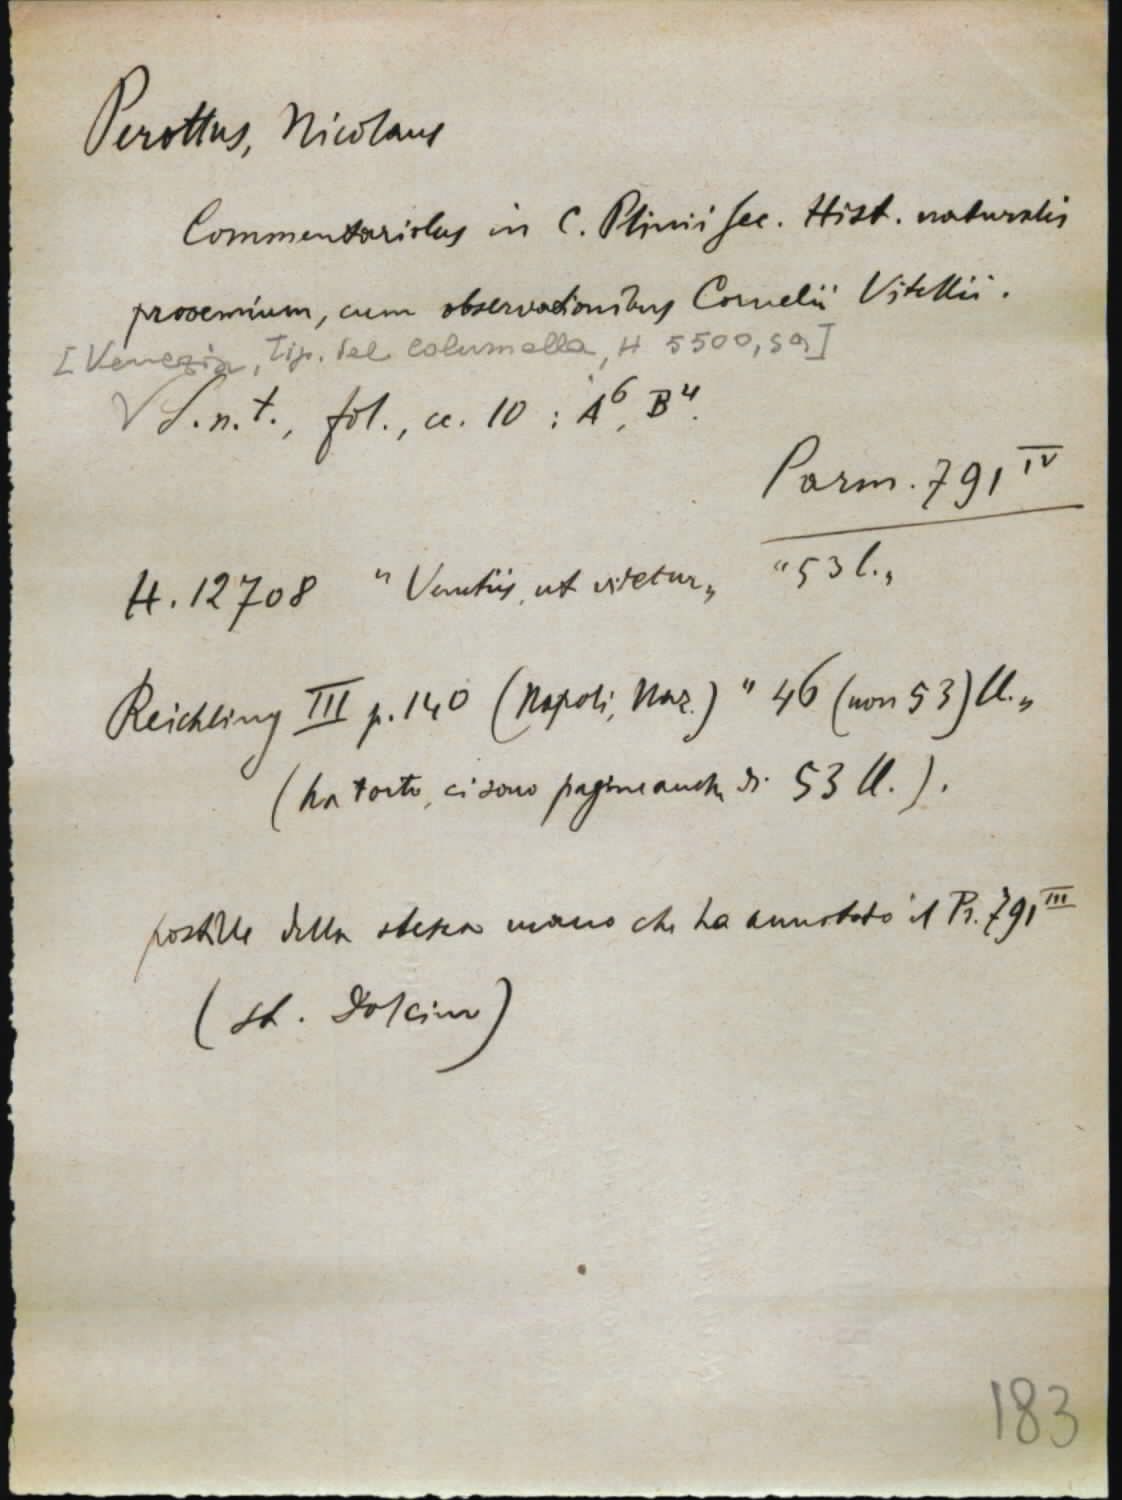 Perottus, Nicolaus
Commentariolus in C. Plinii Sec. Hist. naturalis
prooemium, cum observationibus Cornelii Vitellii.
[Venezia, Tip. del Columella, H 5500, sa]
V S.n.t., fol., cc. 10 : A⁶, B⁴.
Parm. 791 IV
H. 12708 "Venetiis, ut videtur„ "53 l.„
Reichling III p. 140 (Napoli, Naz.) "46 (non 53) ll.„
(ha torto, ci sono pagine anche di 53 ll.).
postille della stessa mano che ha annotato il Pr. 791 III
(st. Dolcino)
183